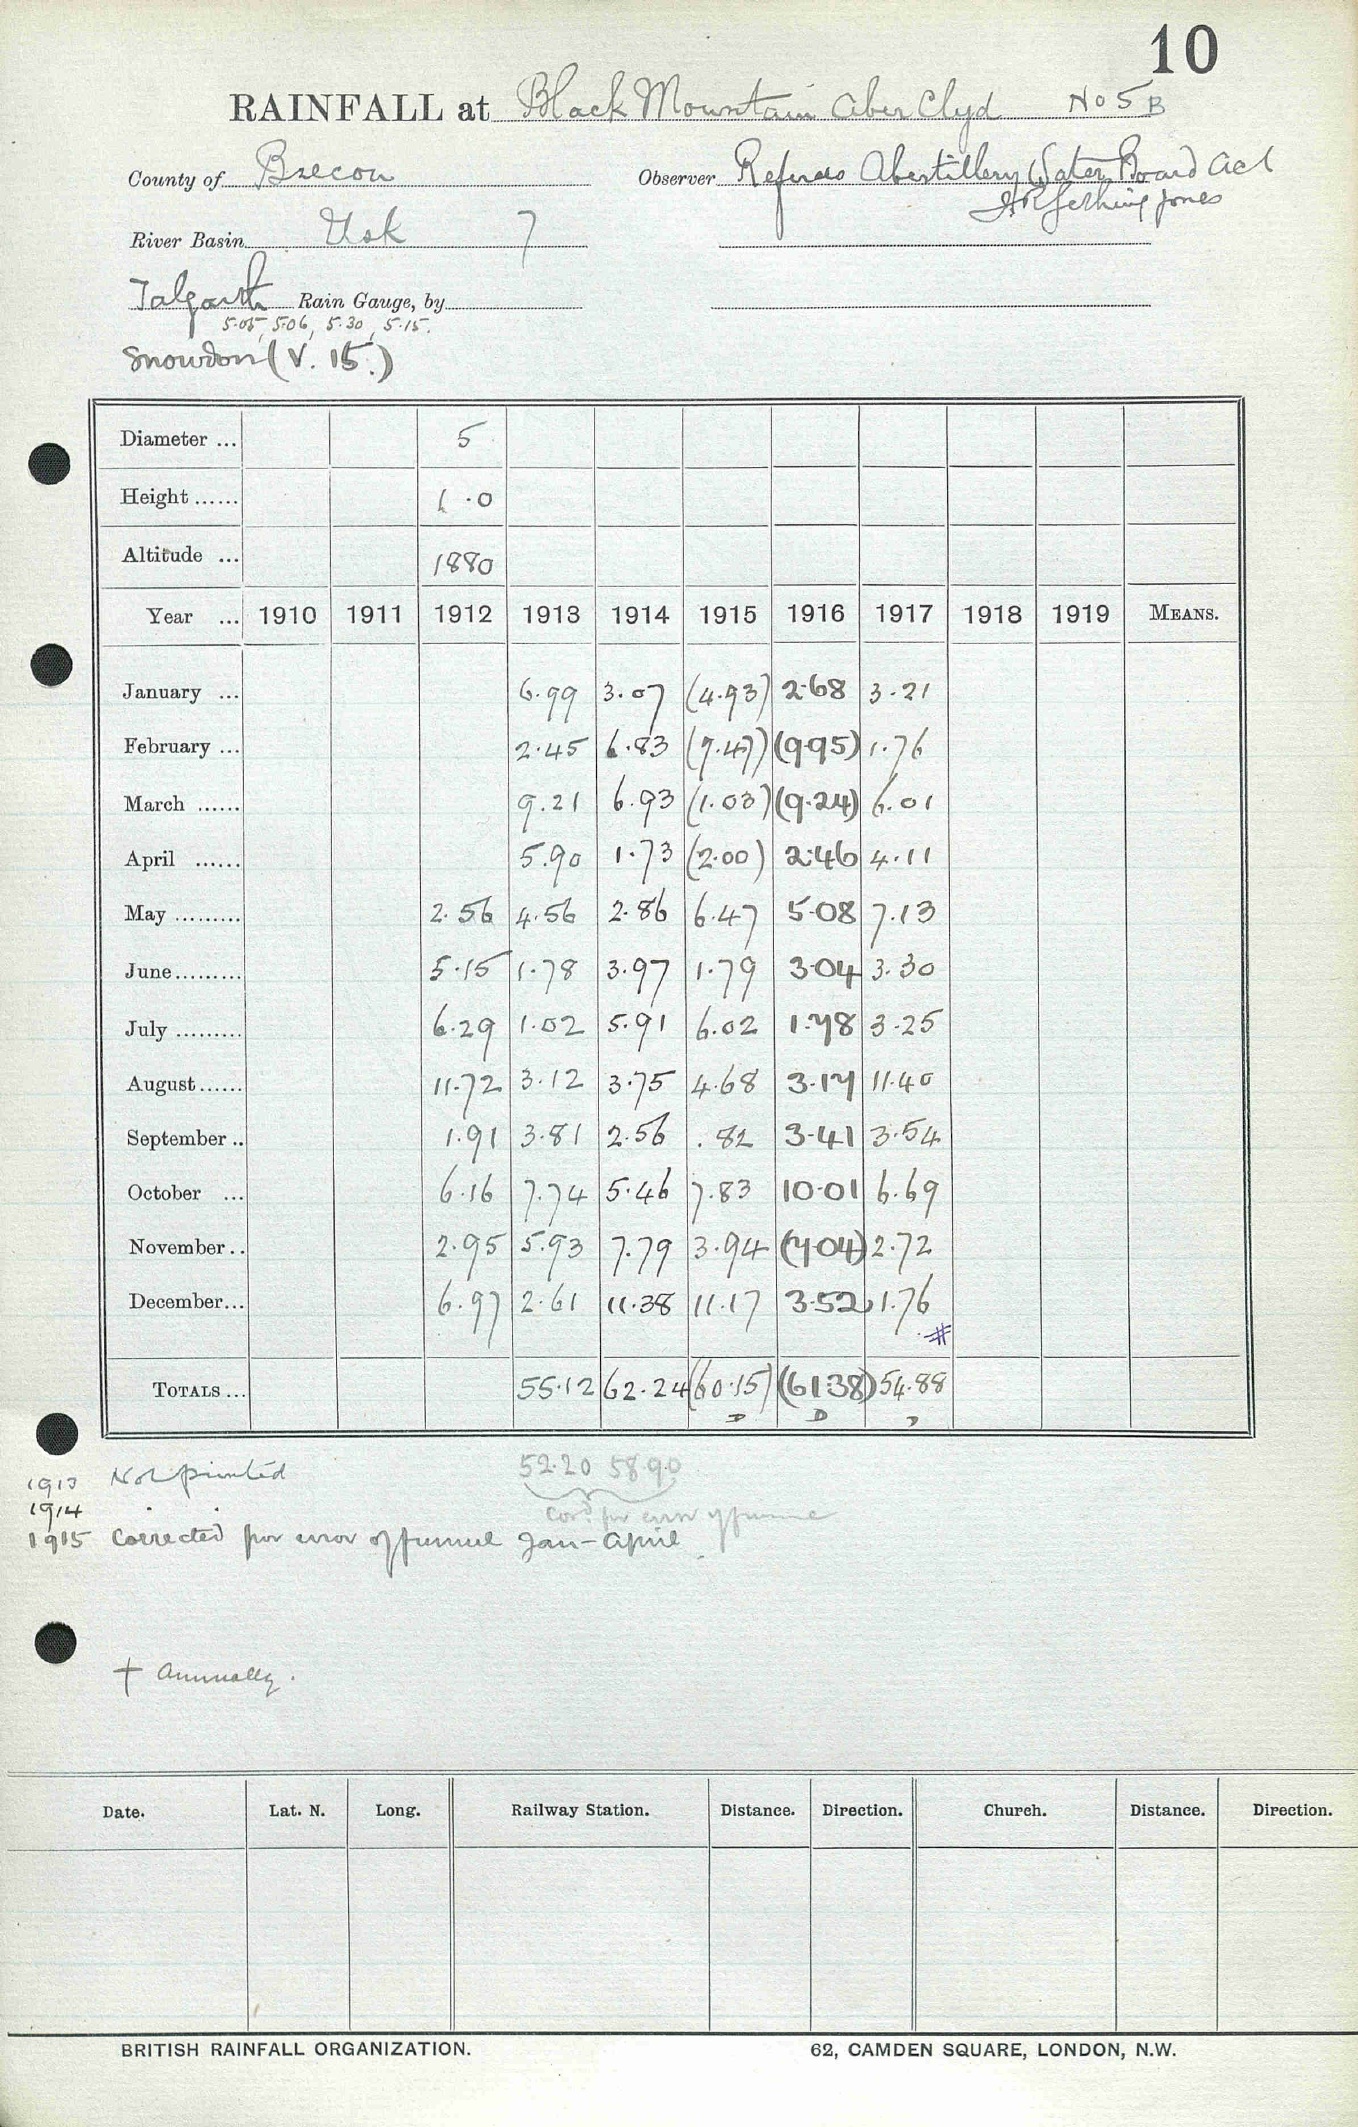 10
RAINFALL at Black Mountain Aber Clyd No 5 B
County of Brecon Observer Abertillery Water Board Act
Jones
River Basin Usk 7
Talgarth Rain Gauge, by
5.05, 5.06, 5.30, 5.15.
Snowdon (V. 15.)
Diameter ... 5
Height ...... 1.0
Altitude ... 1880
Year ... 1910 1911 1912 1913 1914 1915 1916 1917 1918 1919 MEANS.
January ... 6.99 3.07 (4.93) 2.68 3.21
February ... 2.45 6.83 (9.47) (9.95) 1.76
March ...... 9.21 6.93 (1.03) (9.24) 6.01
April ...... 5.90 1.73 (2.00) 2.46 4.11
May ......... 2.56 4.56 2.86 6.47 5.08 7.13
June......... 5.15 1.78 3.97 1.79 3.04 3.30
July ......... 6.29 1.02 5.91 6.02 1.78 3.25
August...... 11.72 3.12 3.75 4.68 3.17 11.40
September .. 1.91 3.81 2.56 .82 3.41 3.54
October ... 6.16 7.74 5.46 7.83 10.01 6.69
November.. 2.95 5.93 7.79 3.94 (7.04) 2.72
December... 6.97 2.61 11.38 11.17 3.52 1.76
#
TOTALS ... 55.12 62.24 (60.15) (61.38) 54.88
D D D
52.20 58.90
1913 Not printed
1914 . .
cord. for error of funnel
1915 Corrected for error of funnel Jan-April
† Annually.
Date. Lat. N. Long. Railway Station. Distance. Direction. Church. Distance. Direction.
BRITISH RAINFALL ORGANIZATION. 62, CAMDEN SQUARE, LONDON, N.W.